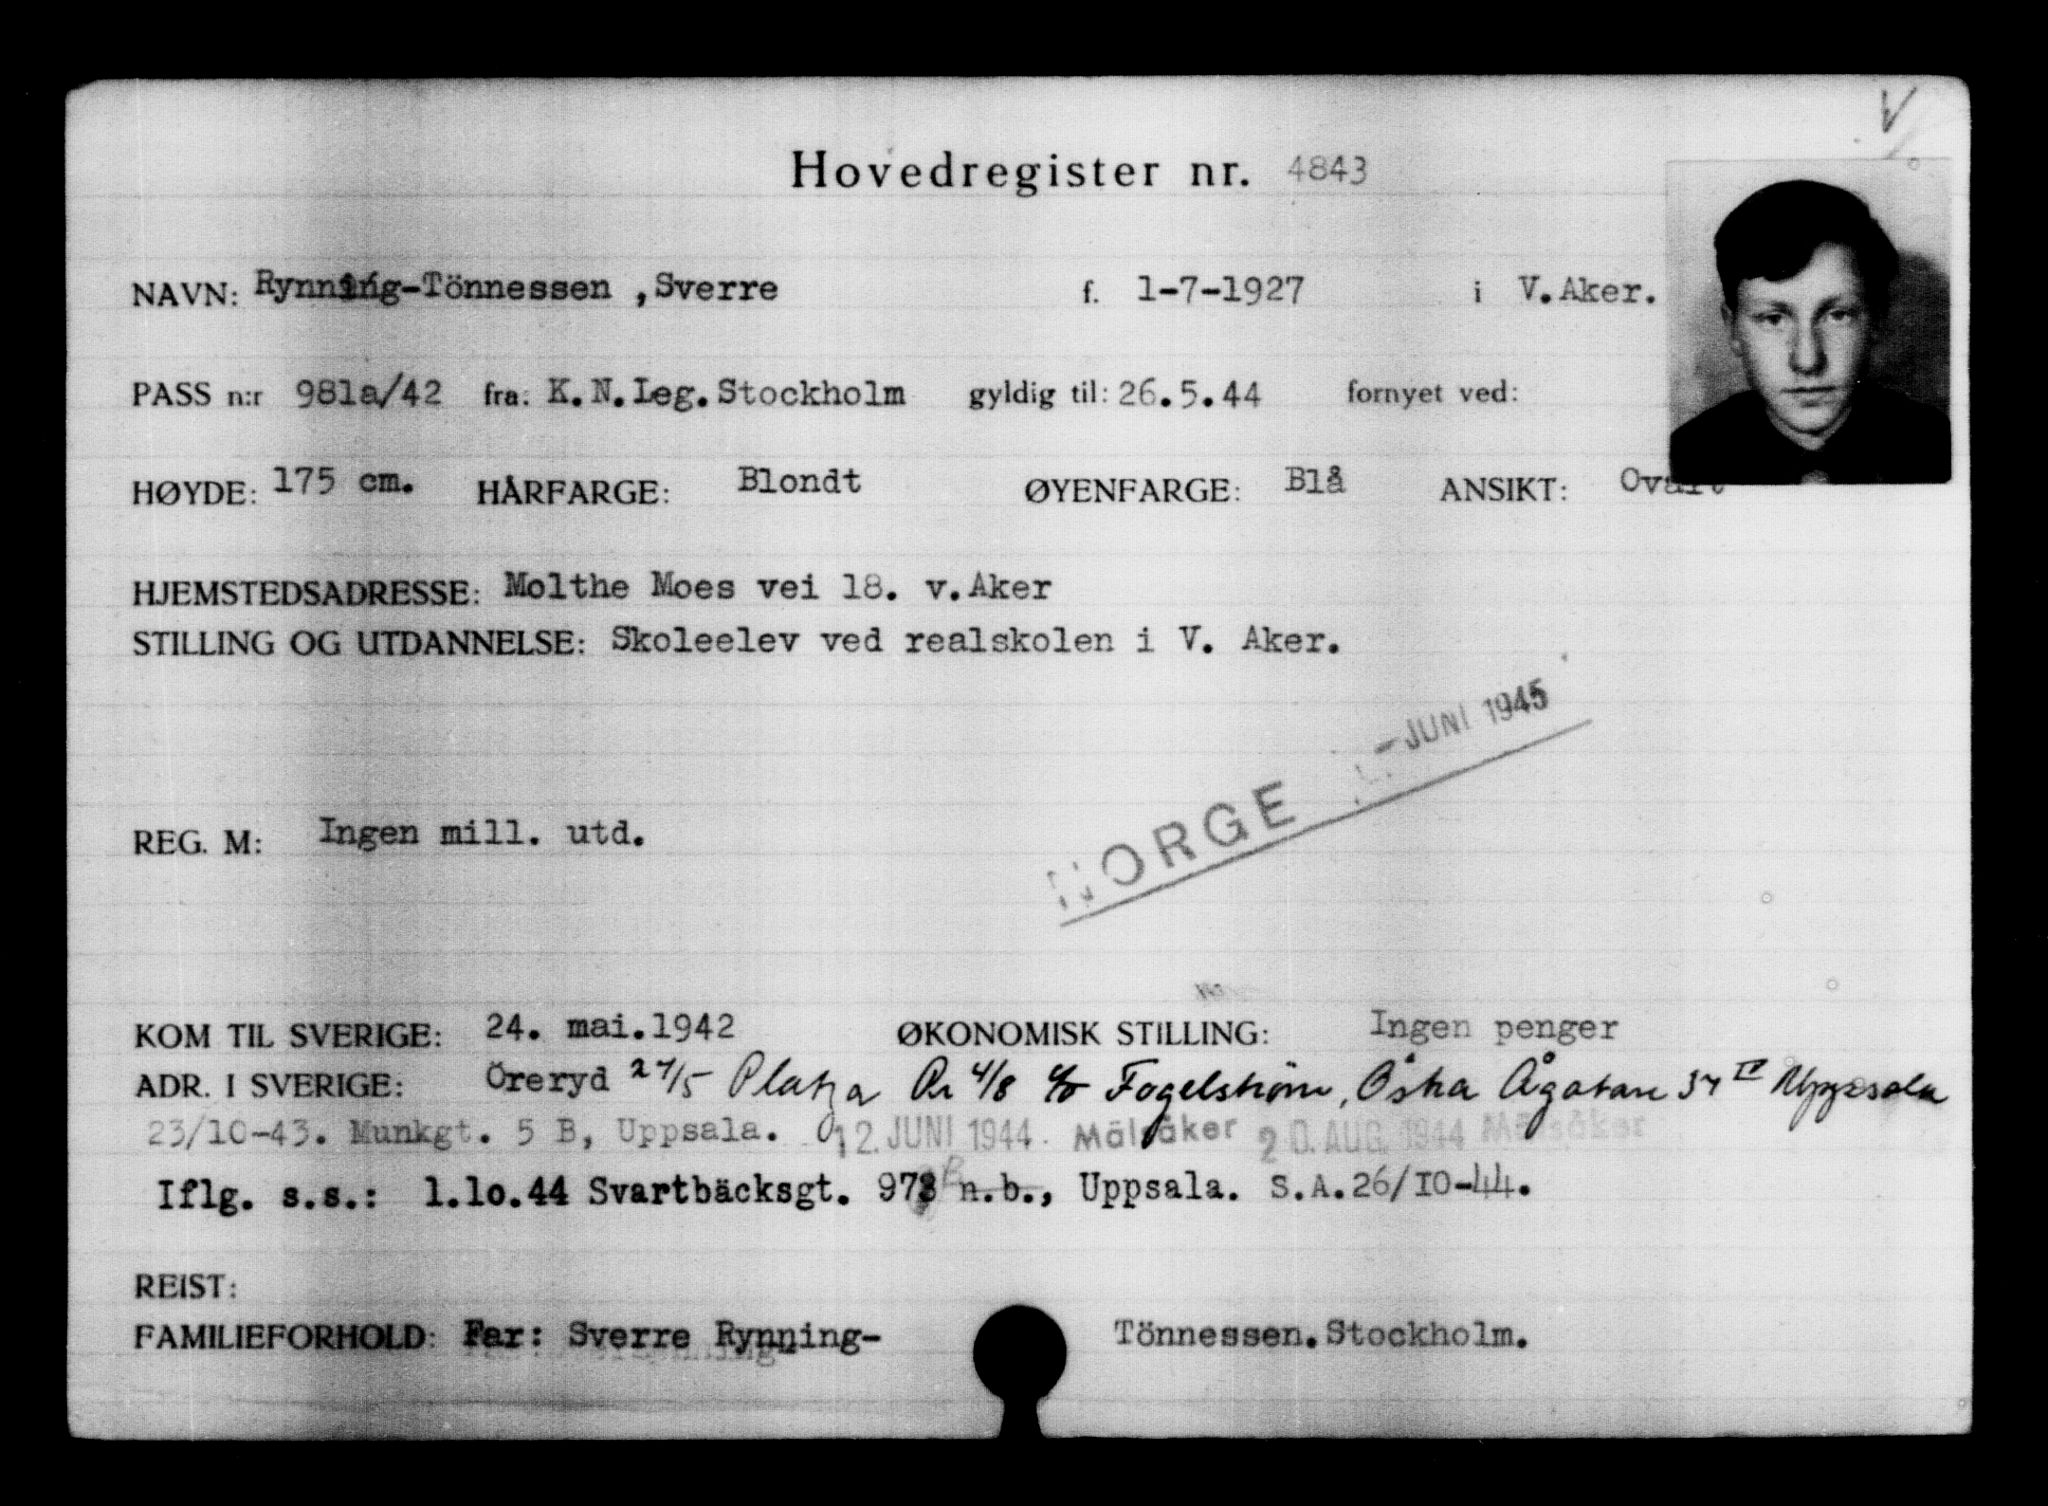 V
Hovedregister nr. 4843
NAVN: Rynning-Tönnessen , Sverre f. 1-7-1927 i V. Aker.
PASS n:r 981a/42 fra: K.N.Leg. Stockholm gyldig til: 26.5.44 fornyet ved:
HØYDE: 175 cm. HÅRFARGE: Blondt ØYENFARGE: Blå ANSIKT: Ovalt
HJEMSTEDSADRESSE: Molthe Moes vei 18. v. Aker
STILLING OG UTDANNELSE: Skoleelev ved realskolen i V. Aker.
- JUNI 1945
NORGE
REG. M: Ingen mill. utd.
KOM TIL SVERIGE: 24. mai. 1942 ØKONOMISK STILLING: Ingen penger
ADR. I SVERIGE: Öreryd 27/5 4/8 c/o Fogelström, Östra Ågatan 37 IV Uppsala
23/10-43. Munkgt. 5 B, Uppsala. 12. JUNI 1944 Mälsåker 20. AUG. 1944 Mälsåker
Iflg. s.s.: 1.10.44 Svartbäcksgt. 97 B n.b., Uppsala. S.A. 26/10-44.
REIST:
FAMILIEFORHOLD: Far: Sverre Rynning- Tönnessen. Stockholm.